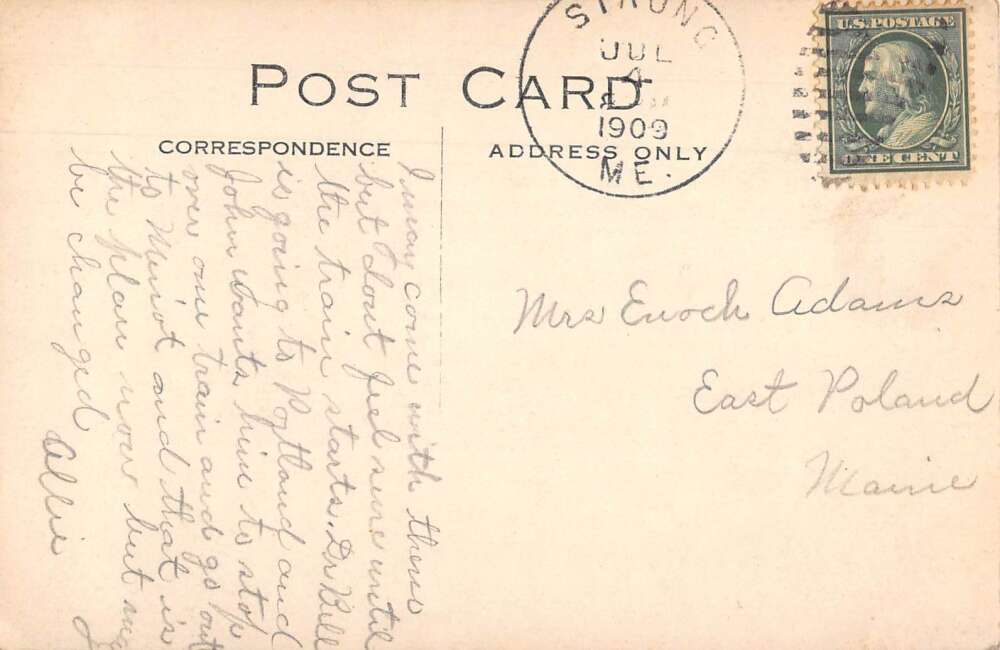 STRONG
JUL
4
1909
ME.
U.S. POSTAGE
ONE CENT
POST CARD
CORRESPONDENCE
ADDRESS ONLY
I may come with them
but dont feel sure until
the train starts. Dr Bell
is going to Portland and
John wants him to stop
over one train and go out
to and that is
the plan now but may
be changed
Allie
Mrs Enoch Adams
East Poland
Maine